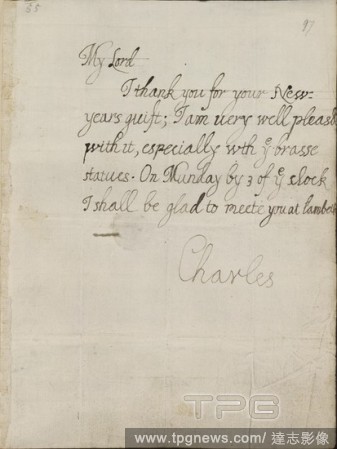 55
97
My Lord
I thank you for your New-
years guift; I am uery well pleased
with it, especially wth ye brasse
statues. On Munday by 3 of ye clock
I shall be glad to meete you at Lambeth
Charles
TPG
www.tpgnews.com/達志影像